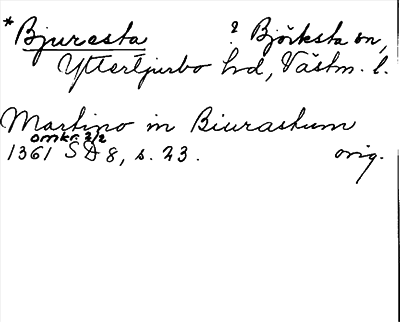 *Bjuresta ? Björksta sn,
Yttertjurbo hd, Västm. l.
Martino in Biurastum
omkr. 2/2
1361 SD 8, s. 23. orig.